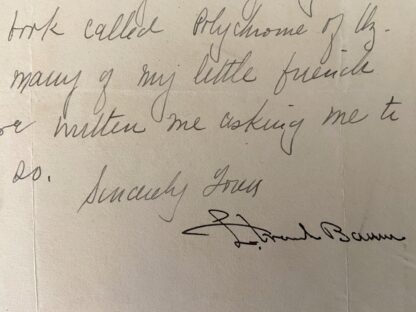 book called Polychrome of Oz.
many of my little friends
ve written me asking me to
so.
Sincerely Yours
L. Frank Baum